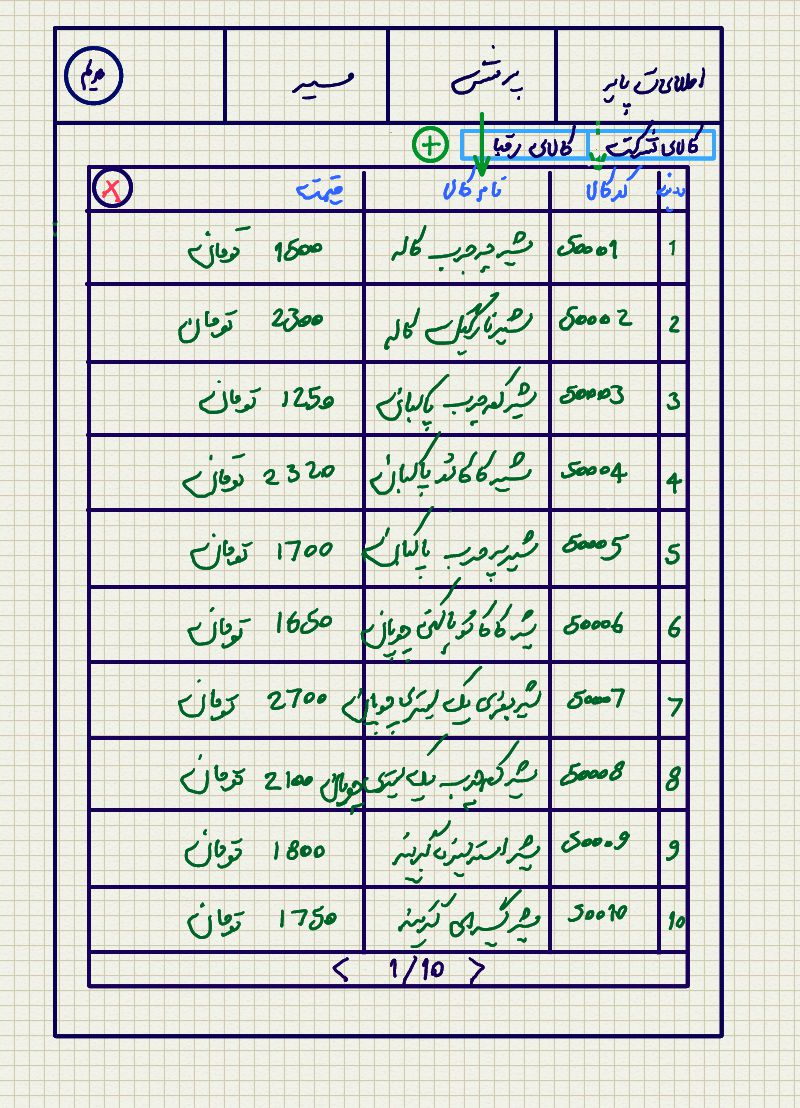 اطلاعات پایه پرسش مسیر مریم
کالای شرکت کالای رقبا +
ردیف کد کالا نام کالا قیمت X
1 50001 شیر پرچرب کاله 1500 تومان
2 50002 شیر نارگیل کاله 2300 تومان
3 50003 شیر کم چرب پاکبان 1250 تومان
4 50004 شیر کاکائو پاکبان 2320 تومان
5 50005 شیر پر چرب پاکبان 1700 تومان
6 50006 شیر کاکائو پاکتی چوپان 1650 تومان
7 50007 شیر بطری یک لیتری چوپان 2700 تومان
8 50008 شیر کم چرب یک لیتری چوپان 2100 تومان
9 50009 شیر استریلیزه 1800 تومان
10 50010 شیر 1750 تومان
< 1/10 >